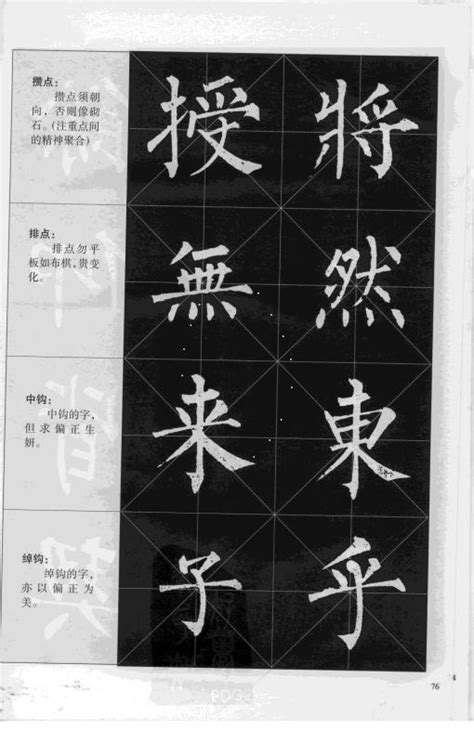 攒点：
攒点须朝
向，否则像砌
石。(注重点间
的精神聚合)
授 將
排点：
排点勿平
板如布棋，贵变
化。
無 然
中钩：
中钩的字，
但求偏正生
妍。
来 東
绰钩：
绰钩的字，
亦以偏正为
美。
子 乎
76